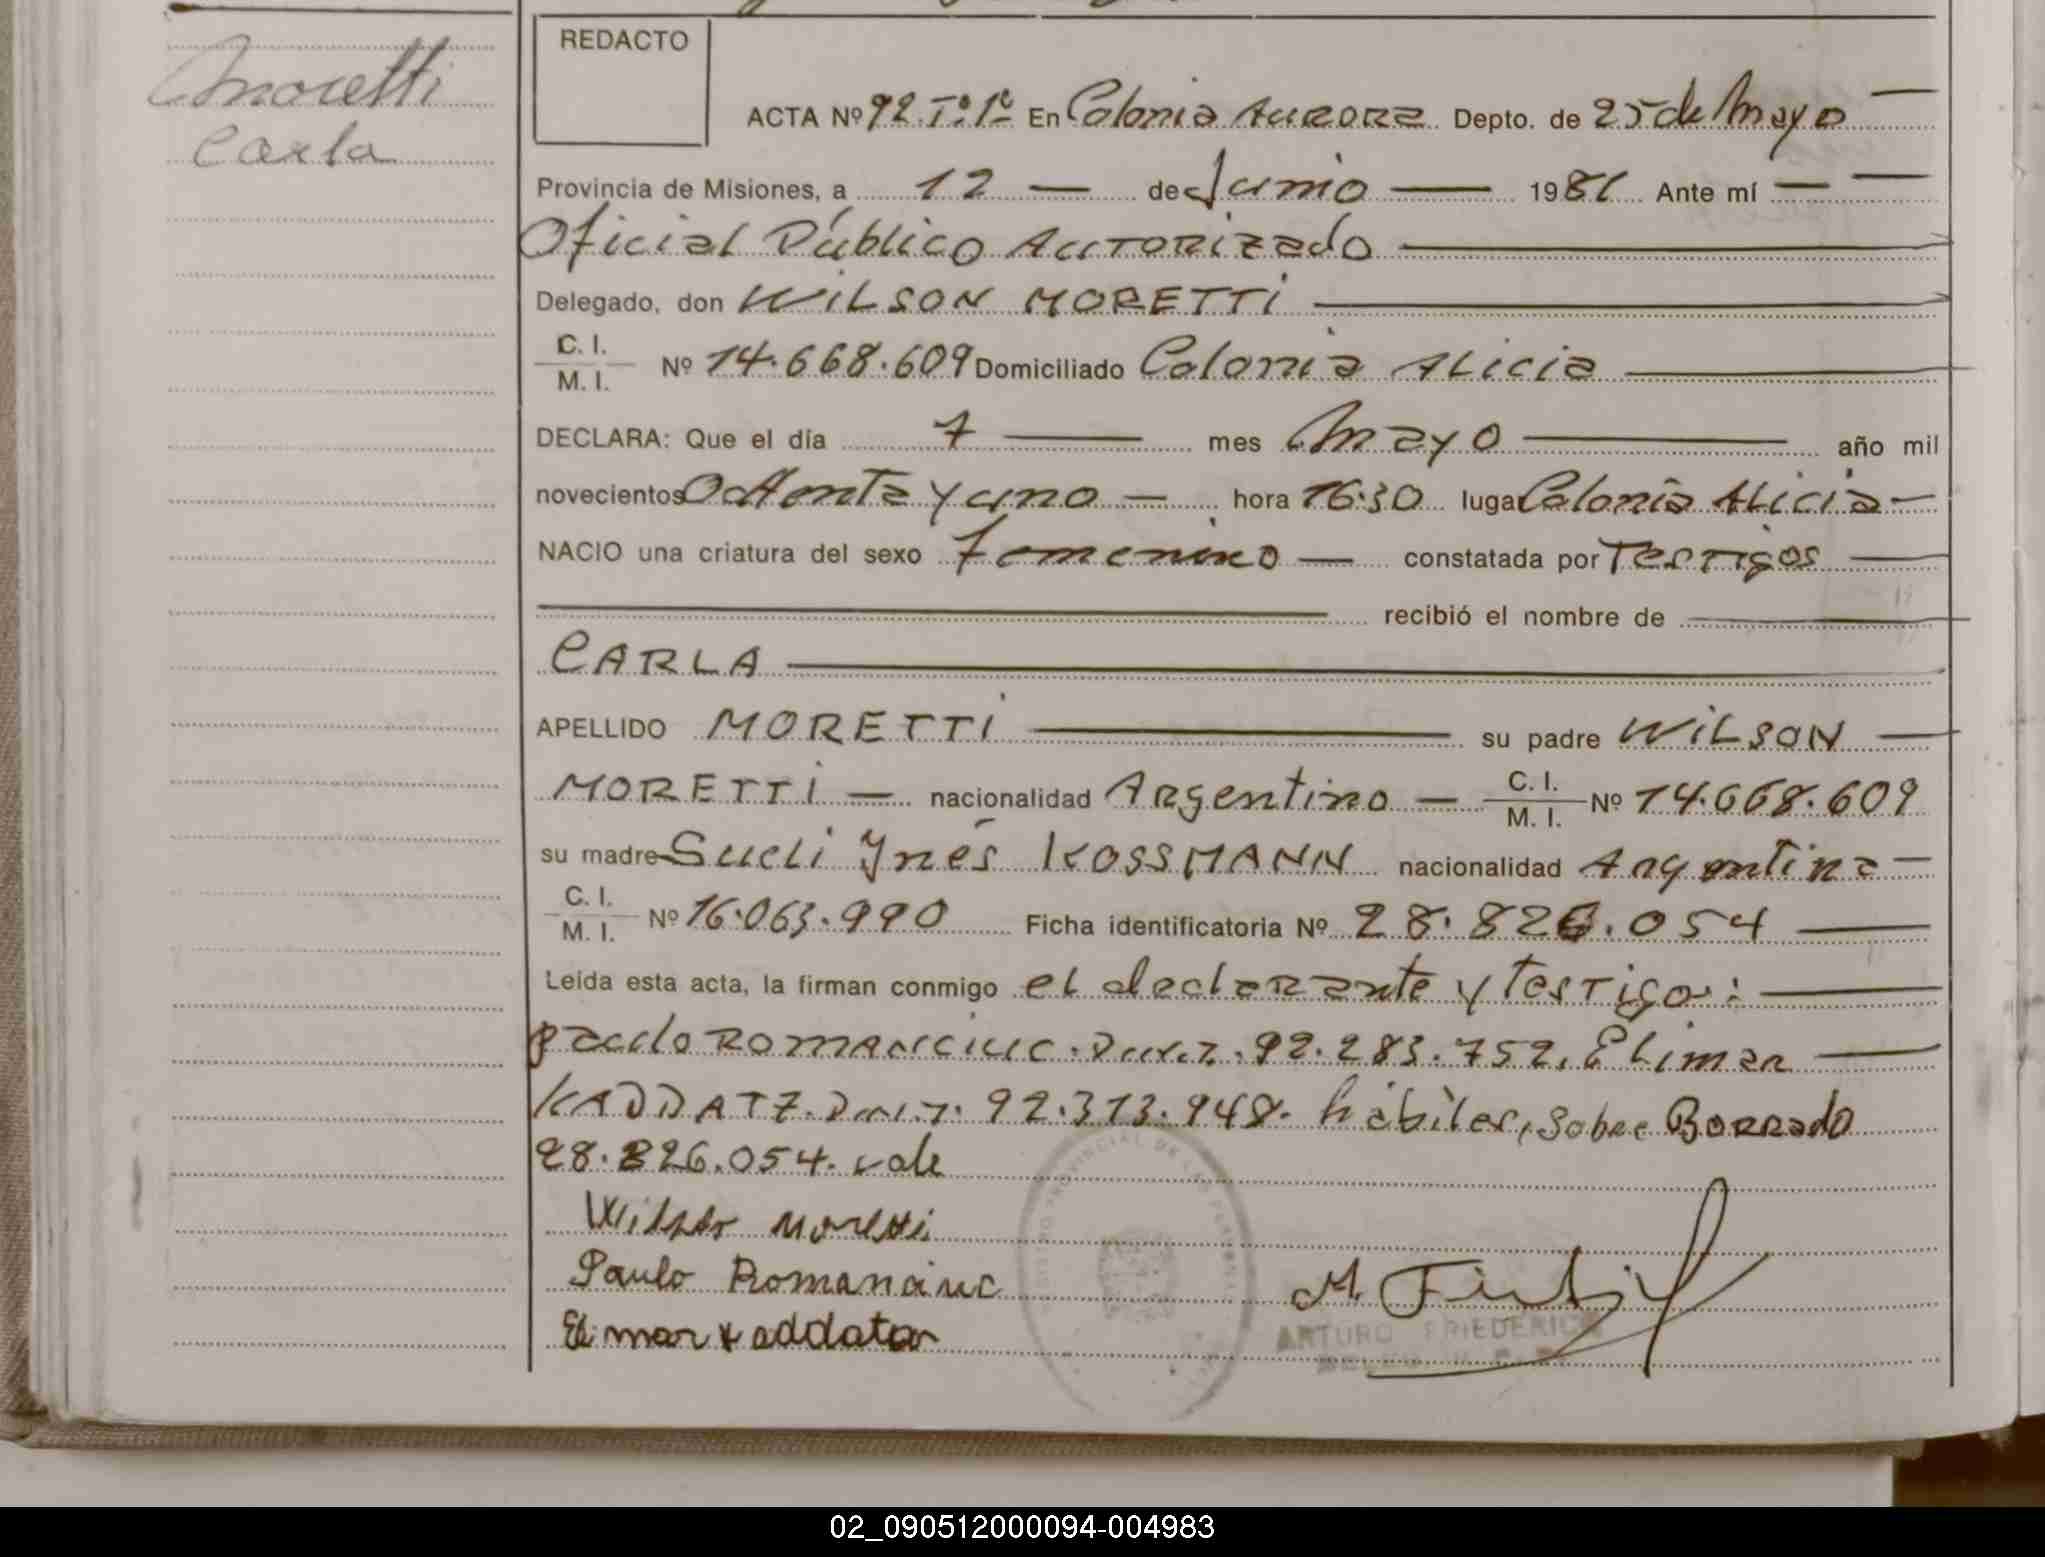 Moretti
Carla
REDACTO
ACTA Nº 92. Tº. 1º En Colonia Aurora Depto. de 25 de Mayo
Provincia de Misiones, a 12 — de Junio — 1981 Ante mí —
Oficial Público Autorizado
Delegado, don WILSON MORETTI
C. I. / M. I. Nº 14.668.609 Domiciliado Colonia Alicia
DECLARA: Que el día 7 — mes Mayo — año mil
novecientos Ochenta y uno — hora 16:30 lugar Colonia Alicia —
NACIO una criatura del sexo femenino — constatada por Testigos
recibió el nombre de
CARLA
APELLIDO MORETTI — su padre WILSON —
MORETTI — nacionalidad Argentino — C. I. / M. I. Nº 14.668.609
su madre Sueli Ynés KOSSMANN nacionalidad Argentina —
C. I. / M. I. Nº 16.063.990 Ficha identificatoria Nº 28.826.054
Leída esta acta, la firman conmigo el declarante y testigos:
Paulo ROMANCIUC. 92.283.752. Elimar
KADDATZ. 92.313.948. hábiles, Sobre Borrado
28.826.054. vale
Wilson Moretti
Paulo Romanciuc
Elimar Kaddatz
ARTURO FRIEDERICH
02_090512000094-004983